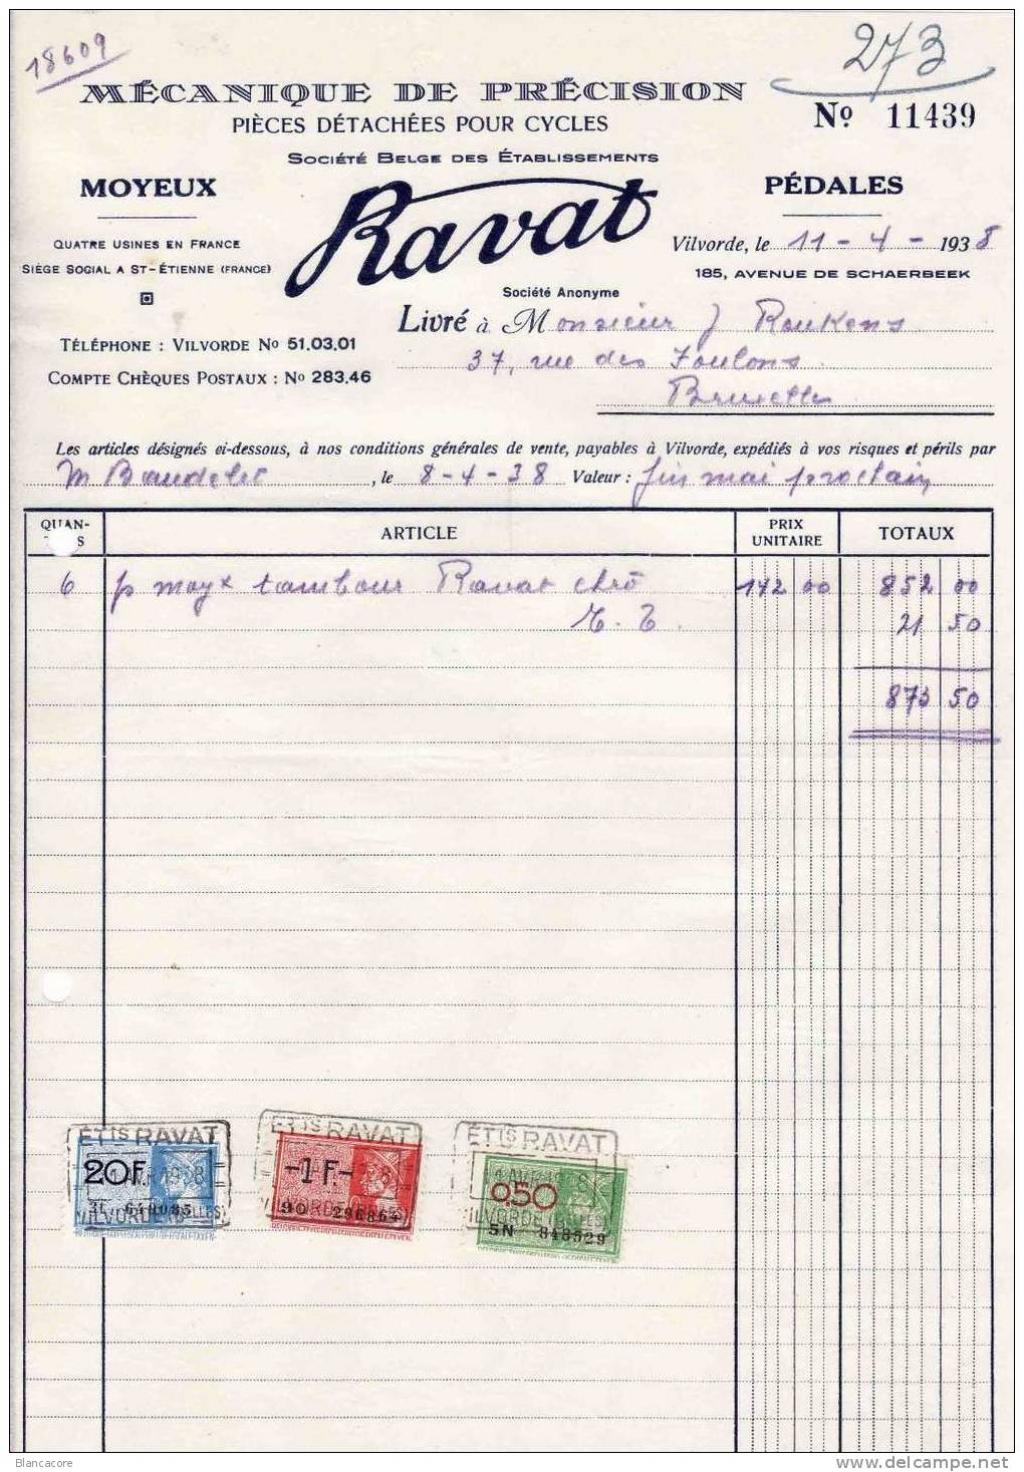 18609
273
MÉCANIQUE DE PRÉCISION
Nº 11439
PIÈCES DÉTACHÉES POUR CYCLES
SOCIÉTÉ BELGE DES ÉTABLISSEMENTS
MOYEUX
Ravat
PÉDALES
QUATRE USINES EN FRANCE
SIÈGE SOCIAL A ST-ÉTIENNE (FRANCE)
Vilvorde, le 11-4-1938
185, AVENUE DE SCHAERBEEK
Société Anonyme
Livré à Monsieur J Roukens
37, rue des Foulons
Bruxelles
TÉLÉPHONE : VILVORDE No 51.03.01
COMPTE CHÈQUES POSTAUX : No 283.46
Les articles désignés ci-dessous, à nos conditions générales de vente, payables à Vilvorde, expédiés à vos risques et périls par
M Baudelet, le 8-4-38 Valeur : fin mai prochain
QUAN- S ARTICLE PRIX UNITAIRE TOTAUX
6 p moyx tambour Ravat chrō 142 00 852 00
T. T. 21 50
873 50
ÉTts RAVAT ÉTts RAVAT ÉTts RAVAT
20F -1F- 0,50
90 296864
5N 848529
VILVORDE
Blancacore
www.delcampe.net